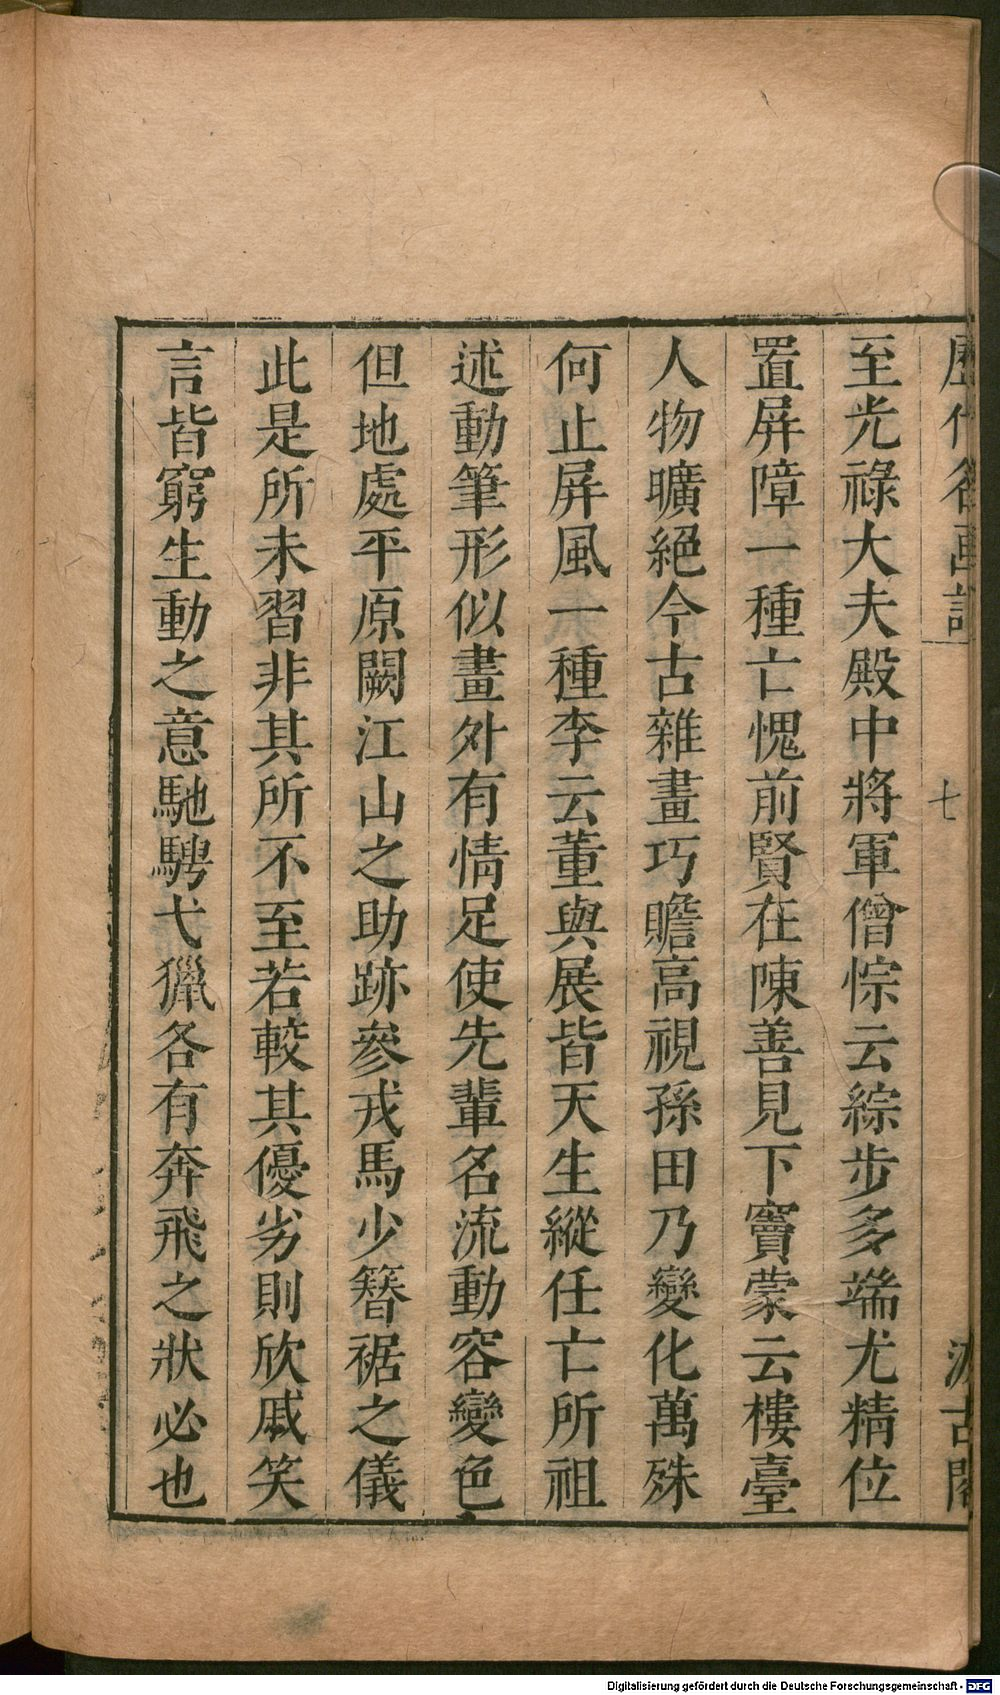 歷代名画記
七
汲古閣
至光祿大夫殿中將軍僧悰云綜步多端尤精位
置屏障一種亡愧前賢在陳善見下竇蒙云樓臺
人物曠絕今古雜畫巧贍高視孫田乃變化萬殊
何止屏風一種李云董與展皆天生縱任亡所祖
述動筆形似畫外有情足使先輩名流動容變色
但地處平原闕江山之助跡參戎馬少簪裾之儀
此是所未習非其所不至若較其優劣則欣戚笑
言皆窮生動之意馳騁弋獵各有奔飛之狀必也
Digitalisierung gefördert durch die Deutsche Forschungsgemeinschaft - DFG